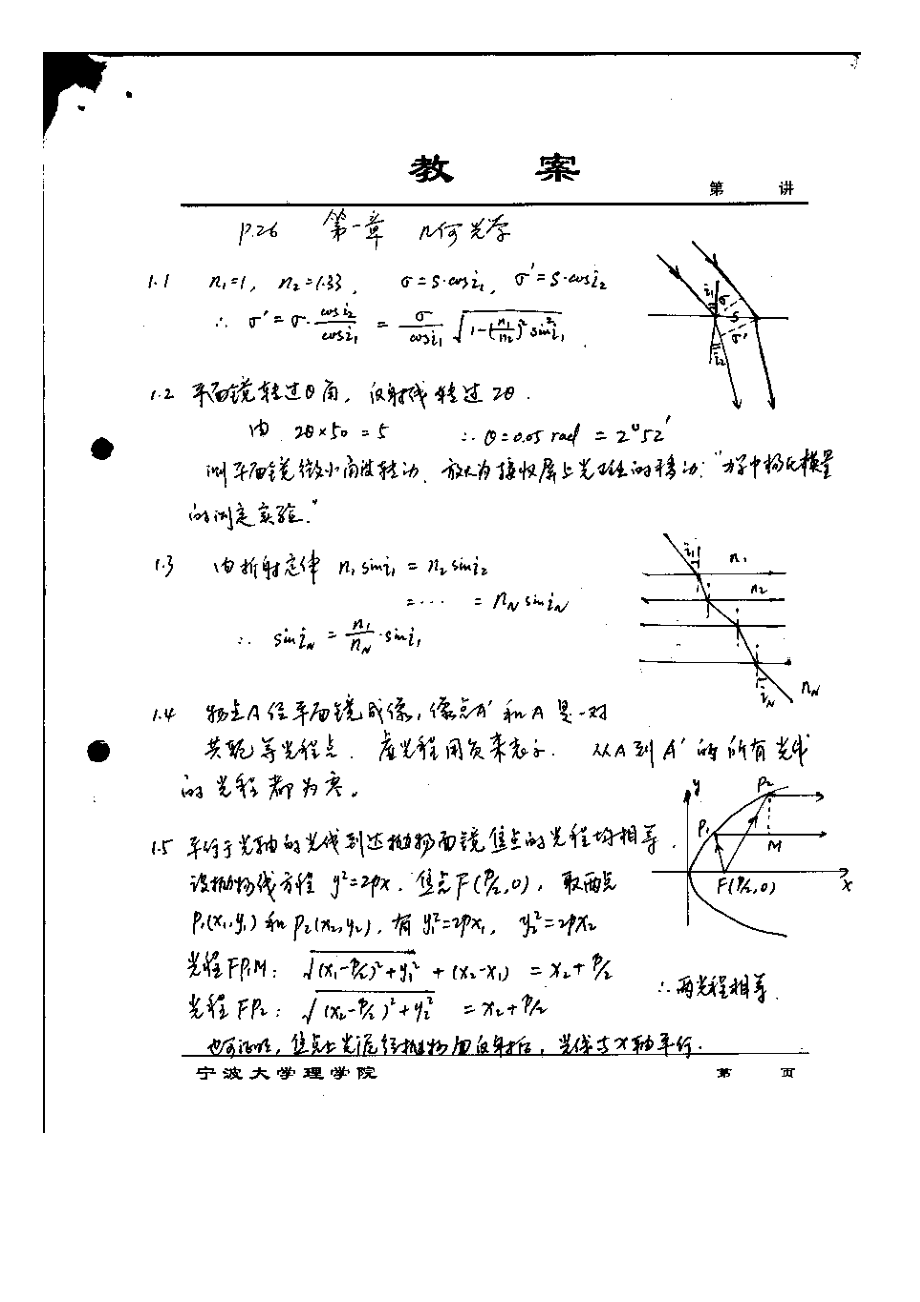 教 案
第 讲
P.26 第一章 几何光学
1.1 n₁=1, n₂=1.33, σ=S·cosi₁, σ'=S·cosi₂
∴ σ'=σ·cosi₂/cosi₁ = σ/cosi₁ √(1-(n₁/n₂)²sin²i₁)
i₁ σ S σ' i₂
1.2 平面镜转过θ角, 反射线转过2θ.
由 2θ×50=5 ∴ θ=0.05 rad = 2°52'
平面镜微小角度转动, 放大为接收屏上光斑的移动: "中杨氏模量
的测定实验."
1.3 由折射定律 n₁sini₁ = n₂sini₂
=··· = n_N sini_N
∴ sini_N = n₁/n_N·sini₁
i₁ n₁
n₂
i_N n_N
1.4 物点A经平面镜成像, 像点A'和A是一对
共轭等光程点. 虚光程用负来表示. 从A到A'的所有光线
的光程都为零。
1.5 平行于光轴的光线到达抛物面镜焦点的光程均相等.
设抛物线方程 y²=2px. 焦点F(P/2,0), 取两点
P₁(x₁,y₁)和P₂(x₂,y₂), 有y₁²=2px₁, y₂²=2px₂
光程FP₁M: √((x₁-P/2)²+y₁²) + (x₂-x₁) = x₂+P/2
光程FP₂: √((x₂-P/2)²+y₂²) = x₂+P/2
∴两光程相等.
y P₂ P₁ M F(P/2,0) x
也可证明, 焦点上光源经抛物面反射后, 光线与x轴平行.
宁波大学理学院
第 页